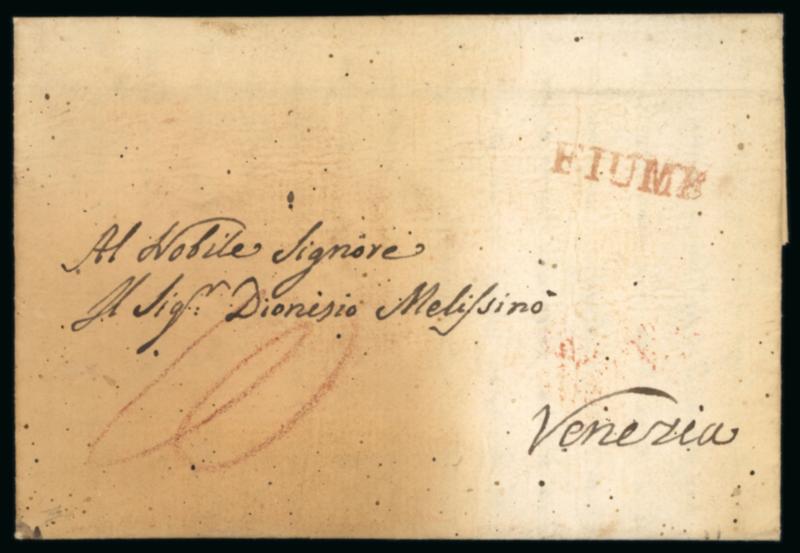 FIUME
Al Nobile Signore
Il Sig.r Dionisio Melissinò
Venezia